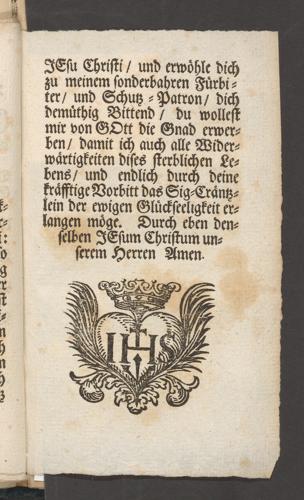 JEsu Christi / und erwöhle dich
zu meinem sonderbahren Fürbi-
ter / und Schutz-Patron / dich
demüthig Bittend / du wollest
mir von GOtt die Gnad erwer-
ben / damit ich auch alle Wider-
wärtigkeiten dises sterblichen Le-
bens / und endlich durch deine
kräfftige Vorbitt das Sig-Cräntz-
lein der ewigen Glückseeligkeit er-
langen möge. Durch eben den-
selben JEsum Christum un-
serem Herren Amen.
IHS